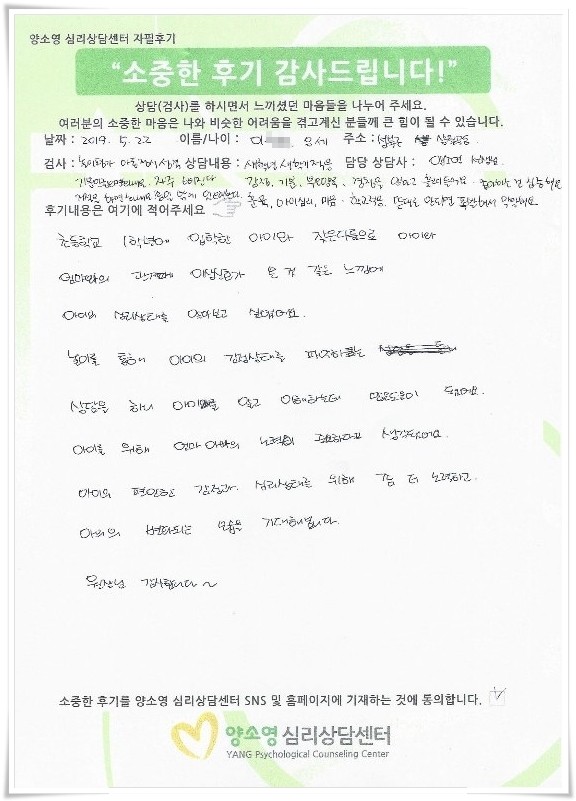 양소영 심리상담센터 자필후기
“소중한 후기 감사드립니다!”
상담(검사)를 하시면서 느끼셨던 마음들을 나누어 주세요.
여러분의 소중한 마음은 나와 비슷한 어려움을 겪고계신 분들께 큰 힘이 될 수 있습니다.
날짜 : 2019. 5. 22 이름/나이 : 이 세 주소 :
검사 : 상담내용 : 담당 상담사 :
후기내용은 여기에 적어주세요
초등학교 1학년에 입학한 아이와 작은다툼으로 아이와
엄마와의 관계에 이상신호가 온 것 같은 느낌에
아이의 심리상태를 알아보고 싶었어요.
놀이를 통해 아이의 감정상태를 파악하는
상담을 하니 아이를 알고 이해하는데 많은도움이 되었어요.
아이를 위해 엄마 아빠의 노력이 필요하다고 생각되어요.
아이의 편안한 감정과 심리상태를 위해 좀 더 노력하고.
아이의 변화되는 모습을 기대해봅니다.
원장님 감사합니다 ~
소중한 후기를 양소영 심리상담센터 SNS 및 홈페이지에 기재하는 것에 동의합니다.
양소영 심리상담센터
YANG Psychological Counseling Center